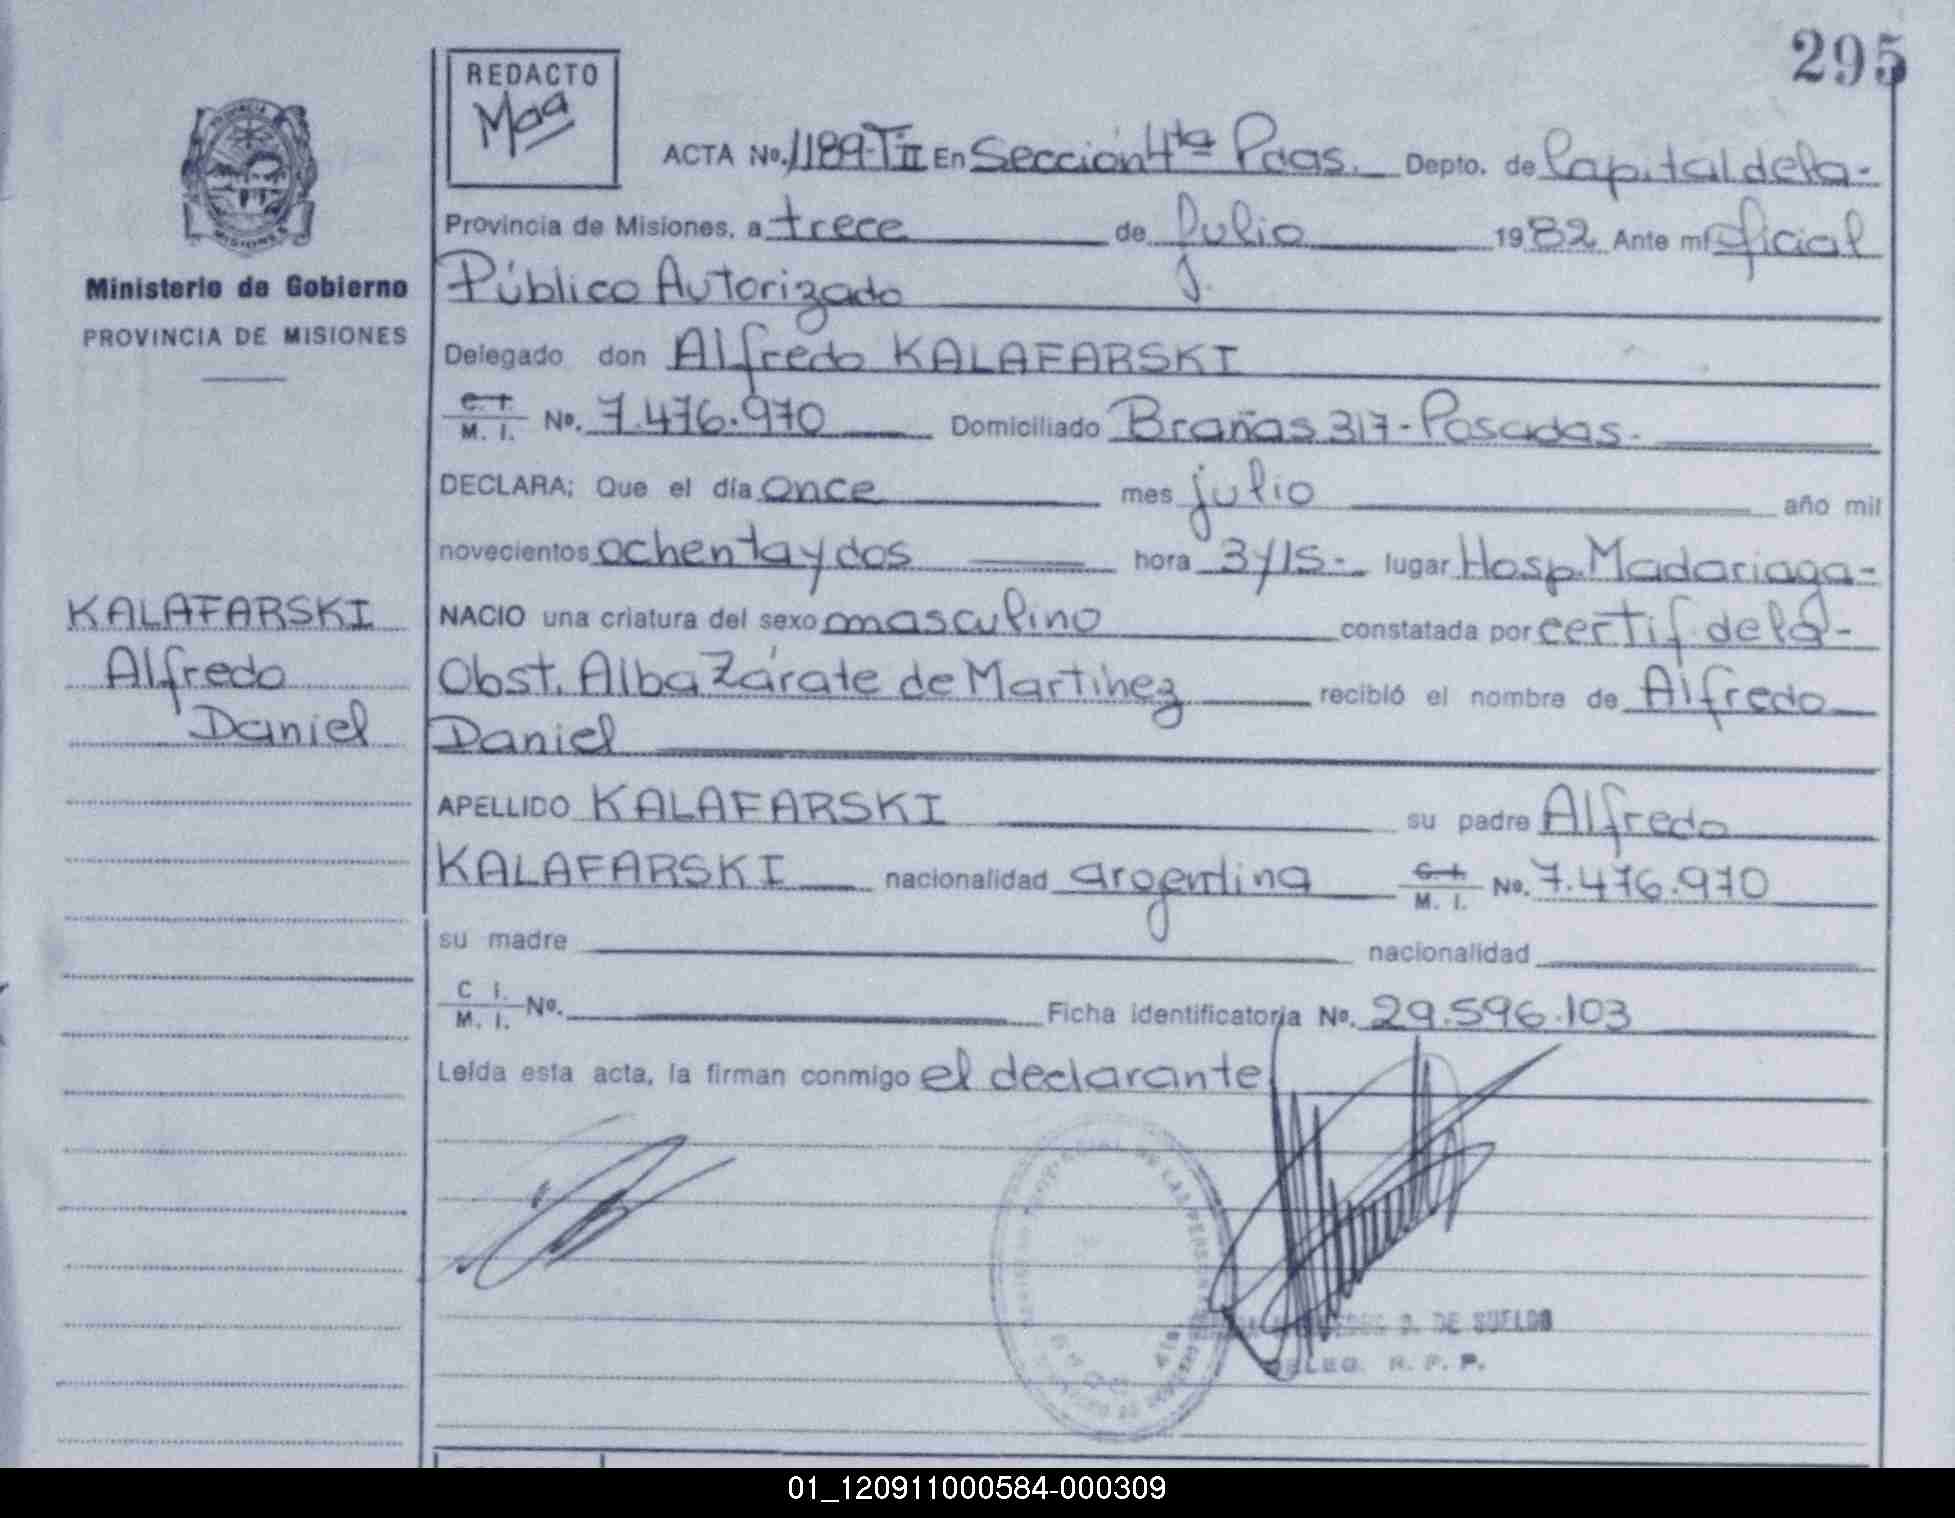 295
REDACTO
Maa
ACTA No. 1189-TII En Sección 4ta Pdas. Depto. de Capital de la-
Provincia de Misiones, a trece de Julio 1982 Ante mí Oficial
Público Autorizado
Delegado don Alfredo KALAFARSKI
C. I. M. I. No. 7.476.970 Domiciliado Brañas 317-Posadas.
DECLARA; Que el día once mes julio año mil
novecientos ochenta y dos hora 3y15- lugar Hosp. Madariaga-
NACIO una criatura del sexo masculino constatada por certif. de la-
Obst. Alba Zárate de Martinez recibió el nombre de Alfredo
Daniel
APELLIDO KALAFARSKI su padre Alfredo
KALAFARSKI nacionalidad argentina C. I. M. I. No. 7.476.970
su madre nacionalidad
C I. M. I. No. Ficha identificatoria No. 29.596.103
Leída esta acta, la firman conmigo el declarante
D. DE SUELDO
DELEG. R. P. P.
MISIONES
Ministerio de Gobierno
PROVINCIA DE MISIONES
KALAFARSKI
Alfredo
Daniel
01_120911000584-000309